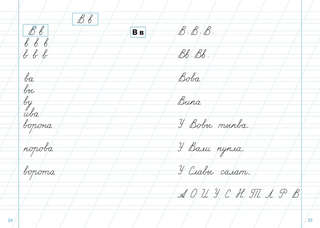 В в
В в
в в в
в в в
ва
вы
ву
ива
ворона
корова
ворота
В в
В В В
Вв Вв
Вова
Вика
У Вовы тыква.
У Вали кукла.
У Славы салат.
А О И У С Н Т Л Р В